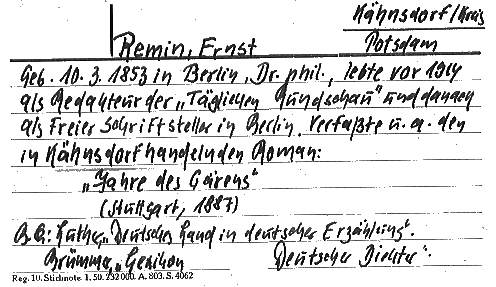 Kähnsdorf/Kreis
Potsdam
Remin, Ernst
Geb. 10.3.1853 in Berlin, Dr. phil., lebte vor 1914
als Redakteur der „Täglichen Rundschau" und danach
als freier Schriftsteller in Berlin. Verfaßte u. a. den
in Kähnsdorf handelnden Roman:
„Jahre des Gärens"
(Stuttgart, 1887)
B.B: Luther, „Deutsches Land in deutscher Erzählung".
Brümmer, „Lexikon Deutscher Dichter".
Reg. 10. Stichnote 1. 50. 232 000. A. 803. S. 4062